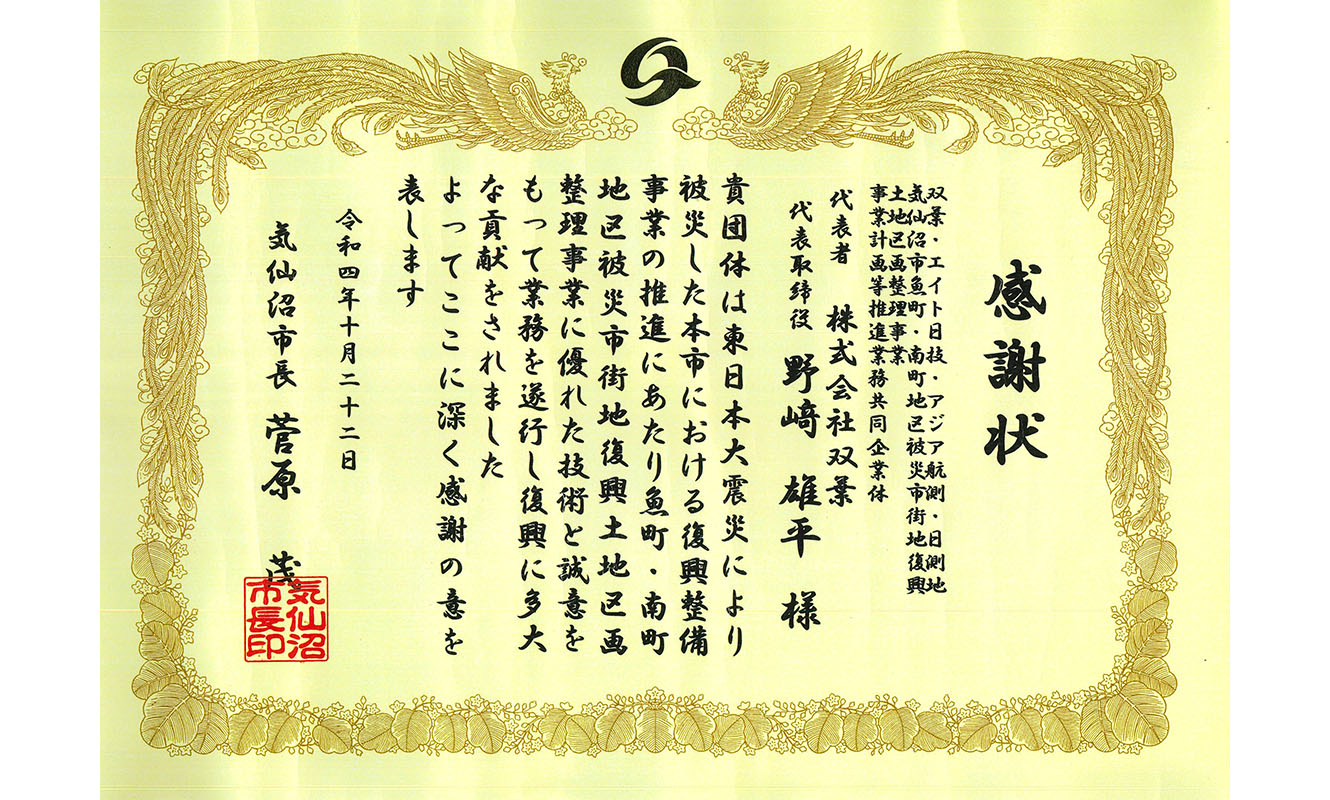 感謝状
双葉・エイト日技・アジア航測・日測地
気仙沼市魚町・南町地区被災市街地復興
土地区画整理事業
事業計画等推進業務共同企業体
代表者 株式会社双葉
代表取締役 野﨑 雄平 様
貴団体は東日本大震災により
被災した本市における復興整備
事業の推進にあたり魚町・南町
地区被災市街地復興土地区画
整理事業に優れた技術と誠意を
もって業務を遂行し復興に多大
な貢献をされました
よってここに深く感謝の意を
表します
令和四年十月二十二日
気仙沼市長 菅原 茂
気仙沼
市長印